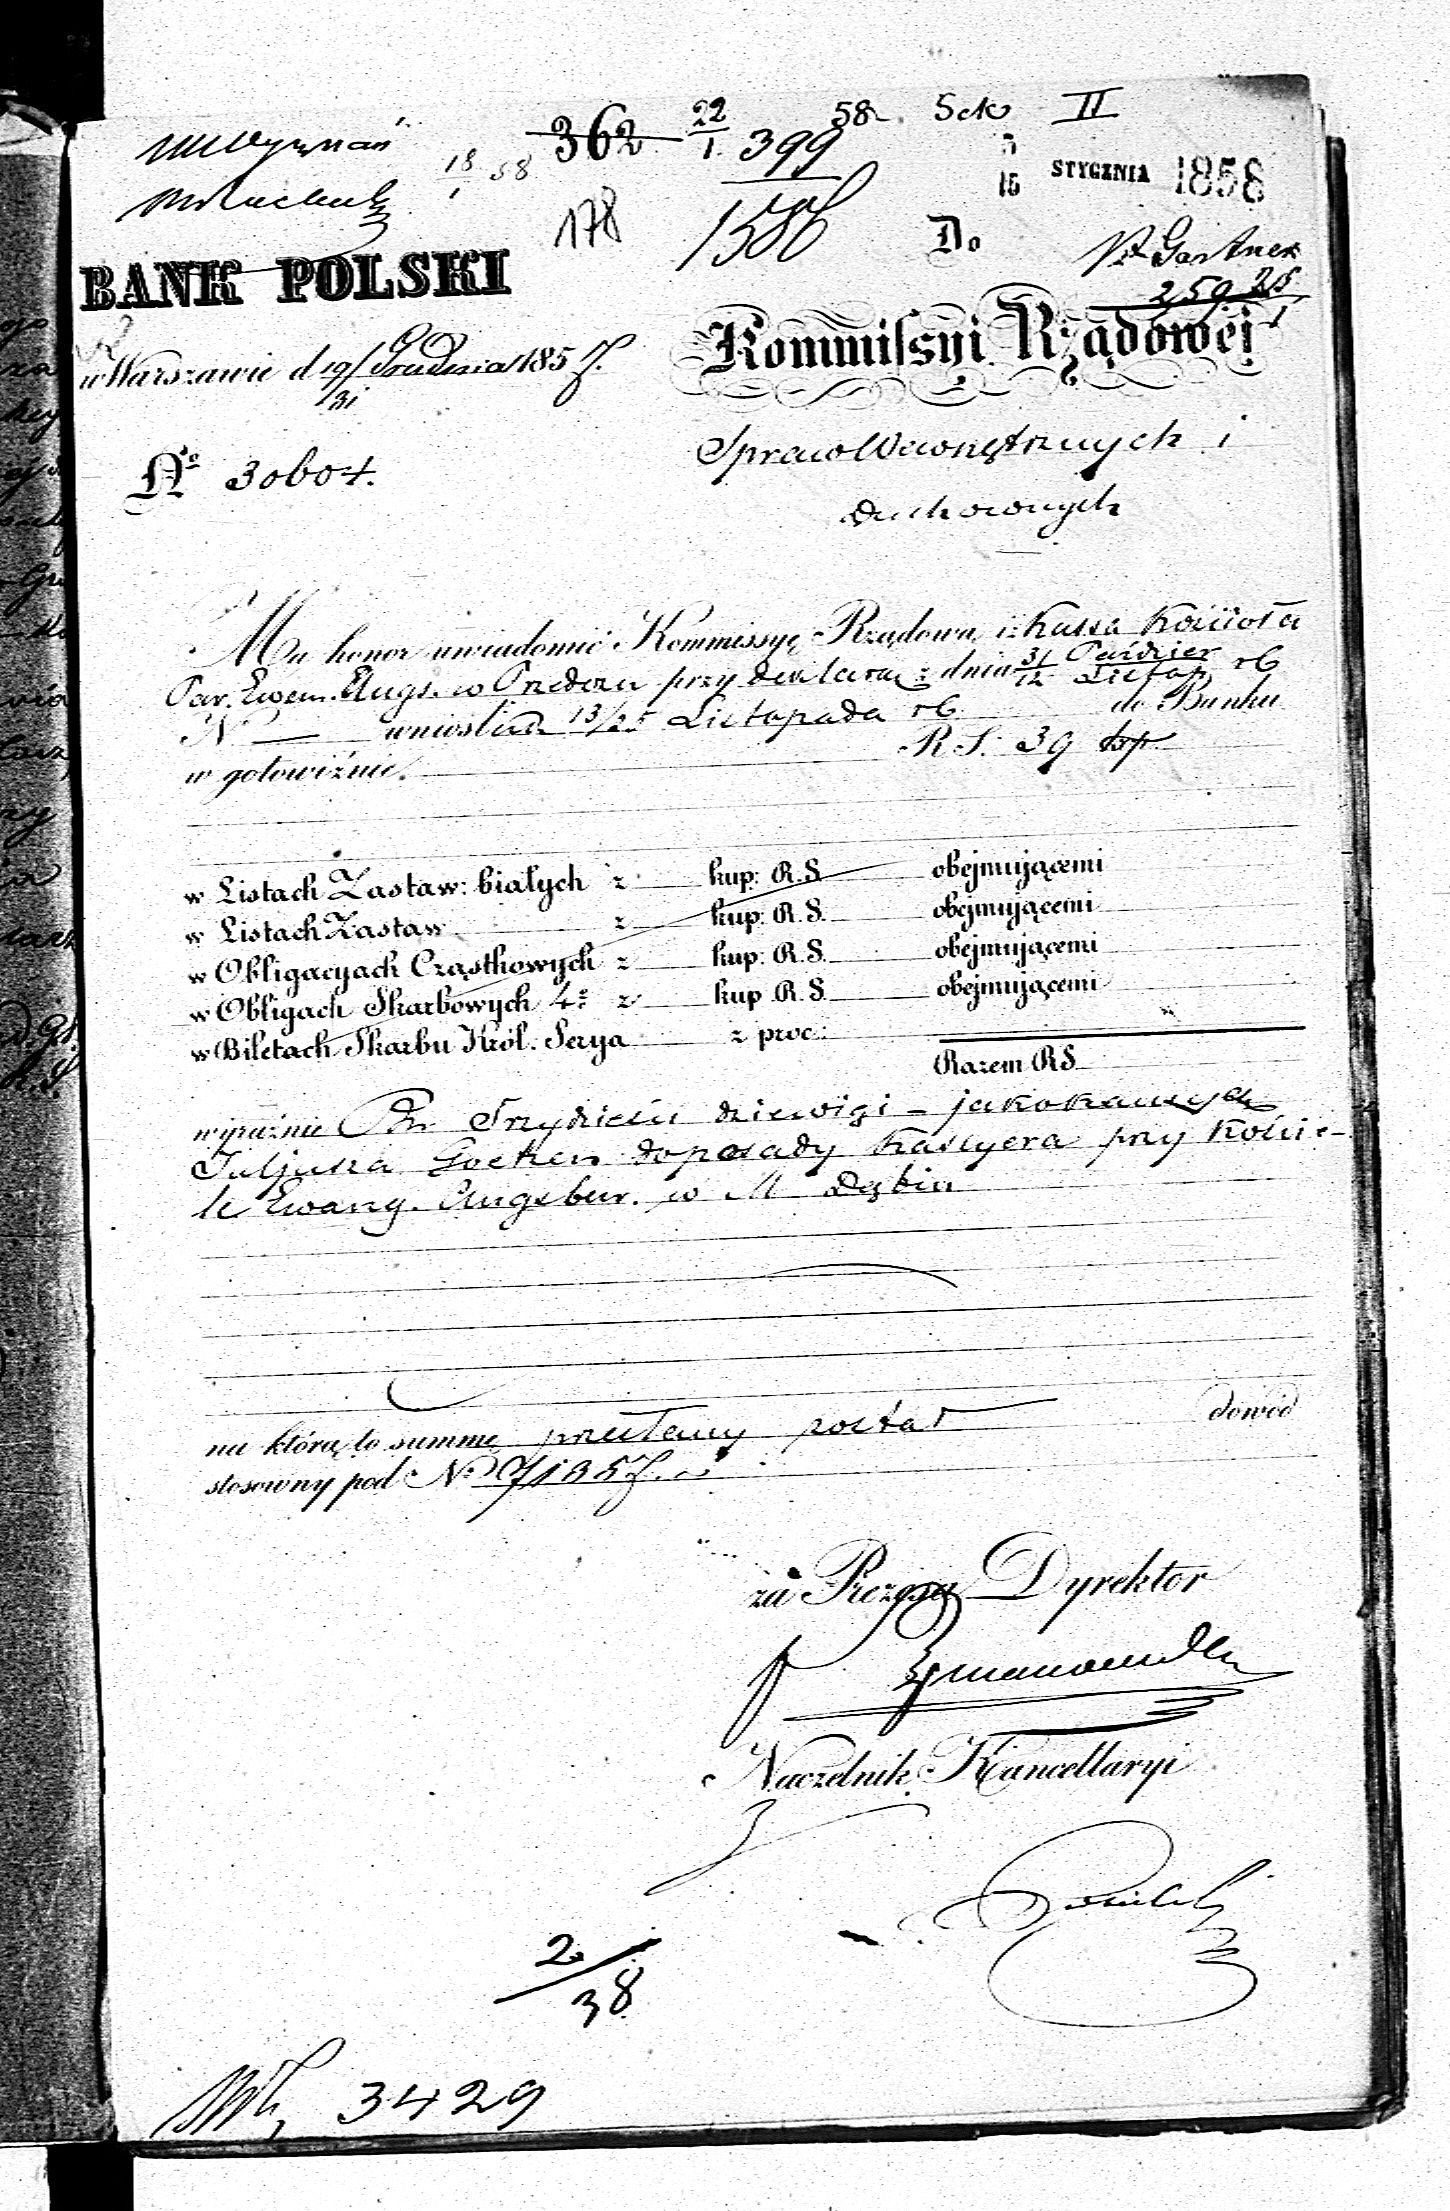 362 22/1 58 Sek II
399
18/1 58
3/15 STYCZNIA 1858
178
Do
Gartner
259
BANK POLSKI
w Warszawie d 19/31 Grudnia 1857.
Kommissyi Rządowéj
Spraw Wewnętrznych i
Duchownych
No 30604.
Ma honor uwiadomić Kommissyę Rządową, iż Kassa Kościoła
Par. Ewan. Augs. w Przedczu przy deklaracyi z dnia 31/12 Paździer/Listop rb
N — wniosła 13/25 Listopada rb do Banku
w gotowiźnie. R.S. 39
w Listach Zastaw: białych z kup: R.S. obejmującemi
w Listach Zastaw z kup: R.S. obejmującemi
w Obligacyach Cząstkowych z kup: R.S. obejmującemi
w Obligach Skarbowych 4% z kup R.S. obejmującemi
w Biletach Skarbu Król. Serya z proc:
Razem RS
wyraźnie Rs. Trzydzieści dziewięć – jako kaucya
Juljusza do posady Kassyera przy Koście-
le Ewang. Augsbur. w M Dąbiu
na którą to summę przesłany został dowód
stosowny pod No
za Prezesa Dyrektor
Naczelnik Kancellaryi
2/38
3429